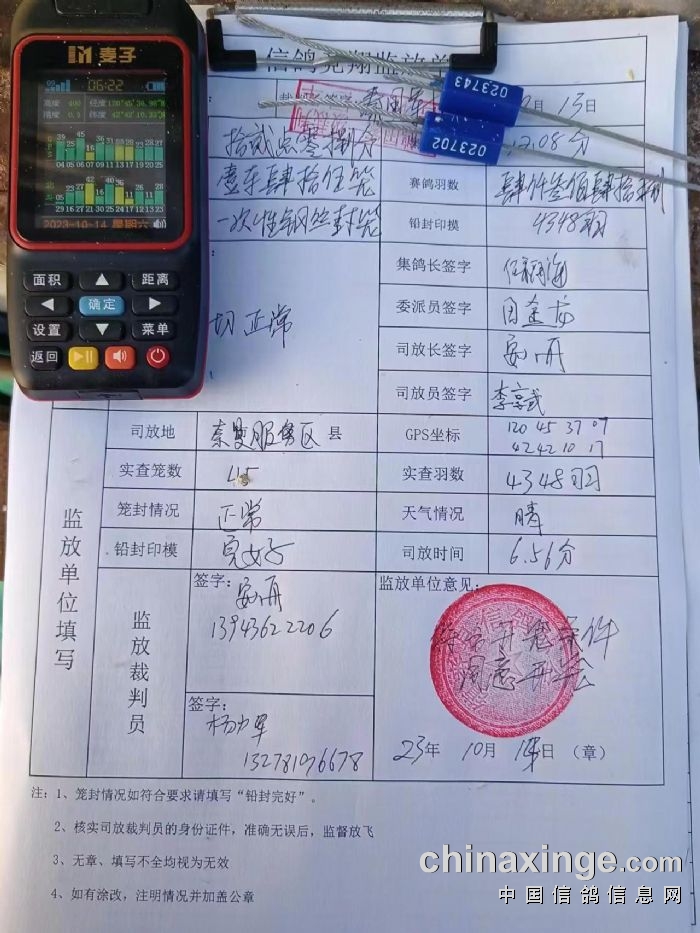 麦子
06:22
高度 400 经度 120°45'36.98"
精度 0.9 纬度 42°42'10.33"
39 45 16 28
04 06 07 09 11 14 16 19 20 25
42 21 36 11 28
29 16 21 27 26 31 08 12 13 23
2023-10-14 星期六
面积 距离
确定
设置 菜单
返回
信鸽竞翔监放单
023743
023702
月 13日
12.08分
拾贰点零捌分
赛鸽羽数
一次性钢丝封笼
铅封印模 4348羽
集鸽长签字
委派员签字
切正常
司放长签字
司放员签字
司放地 服务区 县
GPS坐标 120 45 37 07
42 42 10 17
实查笼数 45
实查羽数 4348羽
笼封情况 正常
天气情况 晴
铅封印模 完好
司放时间 6.56分
监放单位填写
监放裁判员
签字:
13943622206
签字:
杨力军
132781076678
监放单位意见:
符合开笼条件
同意开笼
23年 10月 14日 (章)
注: 1、笼封情况如符合要求请填写“铅封完好”。
2、核实司放裁判员的身份证件,准确无误后,监督放飞
3、无章、填写不全均视为无效
4、如有涂改,注明情况并加盖公章
chinaxinge.com
中国信鸽信息网